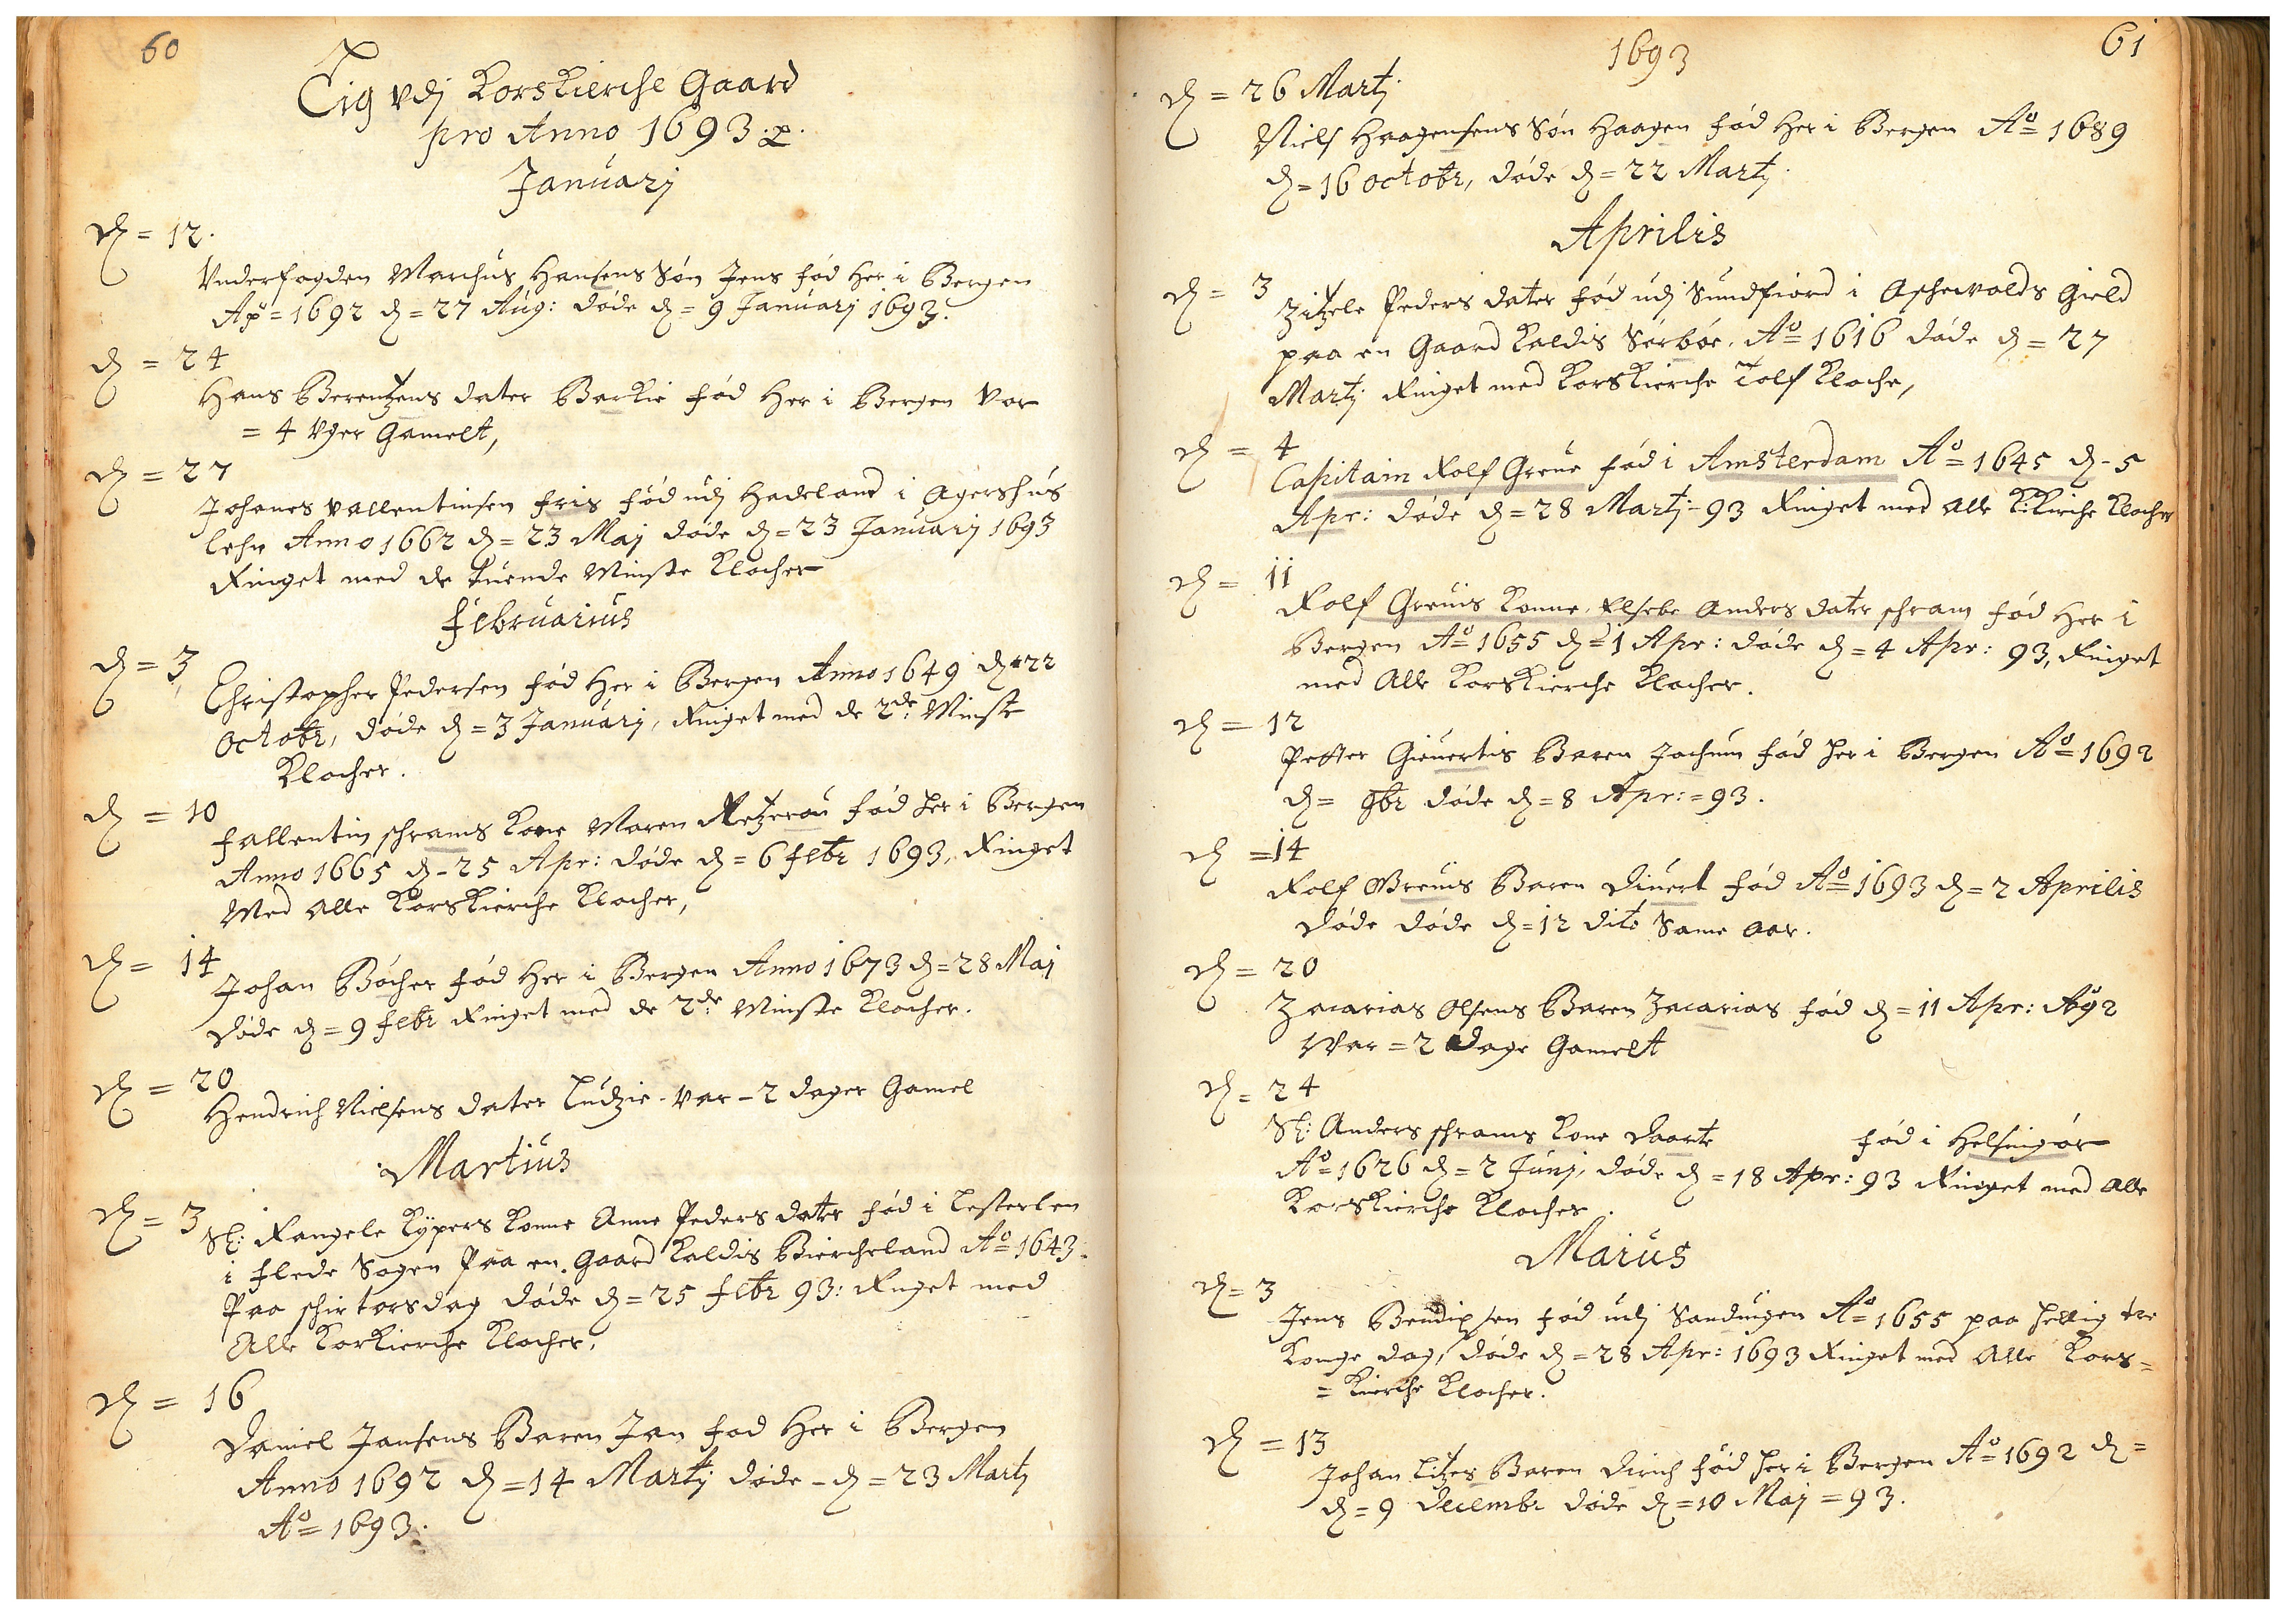 60
Lig vdj Korskierche Gaard
pro Anno 1693
Januarj
d = 12.
Vnderfogden Marchus Hansens Søn Jens fød Her i Bergen
Aō = 1692 d = 27 Aug: døde d = 9 Januarj 1693.
d = 24
Hans Berentzens dater Barkie fød Her i Bergen Var
= 4 Vger Gamelt,
d = 27
Johanes Vallentinsen Fris fød udj Hadeland i Agershus
Lehn Anno 1662 d = 23 Maj døde d = 23 Januarj 1693
Ringet med de tuende Minste Klocher
Februarius
d = 3
Christopher Pedersen fød Her i Bergen Anno 1649 d = 22
Octobr, døde d = 3 Januarj, Ringet med de 2de Minste
Klocher.
d = 10
Fallentin Schrams Kone Maren Retzerou fød her i Bergen
Anno 1665 d - 25 Apr: døde d = 6 Febr 1693, Ringet
Med Alle Korskierche Klocher,
d = 14
Johan Bøcher fød Her i Bergen Anno 1673 d = 28 Maj
døde d = 9 Febr Ringet med de 2de Minste Klocher.
d = 20
Hendrich Nielsens dater Ludzie - Var - 2 dager Gamel
Martius
d = 3
Sl: Rangele Kypers Konne Anne Peders dater fød i Lesterlen
i Flede Sogen Paa en Gaard Kaldis Biercheland Aō = 1643.
Paa schirtorsdag døde d = 25 Febr 93: Ringet med
Alle Korkierche Klocher,
d = 16
Daniel Jansens Baren Jan fød Her i Bergen
Anno 1692 d = 14 Martj døde - d = 23 Martj
Aō = 1693.
1693
61
d = 26 Martj
Niels Haagensens Søn Haagen fød Her i Bergen Aō = 1689
d = 16 Octobr, døde d = 22 Martj.
Aprilis
d = 3
Zitzele Peders dater fød udj Sundfiord i Aschevolds Gield
paa en Gaard Kaldis Sørbøe. Aō = 1616 døde d = 27
Martj Ringet med Korskierche Tolf Kloche,
d = 4
Capitain Rolf Greve fød i Amsterdam Aō = 1645 d - 5
Apr: døde d = 28 Martj - 93 Ringet med Alle K:Kirche Klocher
d = 11
Rolf Grevis Konne Elsebe Anders dater schram fød Her i
Bergen Aō = 1655 d = 1 Apr: døde d = 4 Apr: 93, Ringet
med Alle Korskierche Klocher.
d = 12
Petter Gievertis Baren Jochum fød her i Bergen Aō = 1692
d = 9br døde d = 8 Apr: = 93.
d = 14
Rolf Grevis Baren Divert fød Aō = 1693 d = 2 Aprilis
døde døde d = 12 dito Same Aar.
d = 20
Zacarias Olsens Baren Zacarias fød d = 11 Apr: Aō 92
War = 2 Dage Gamelt
d = 24
Sl: Anders schrams Kone Daarte fød i Helsingør
Aō = 1626 d = 2 Junj, døde d = 18 Apr: 93 Ringet med Alle
Korskierche Klocher.
Maius
d = 3
Jens Bendixsen fød udj Sanduigen Aō = 1655 paa hellig tre
Konge dag, døde d = 28 Apr: 1693 Ringet med Alle Kors=
= Kierche Klocher.
d = 13
Johan Litzes Baren Dirich fød her i Bergen Aō = 1692 d =
d = 9 Decembr døde d = 10 Maj = 93.